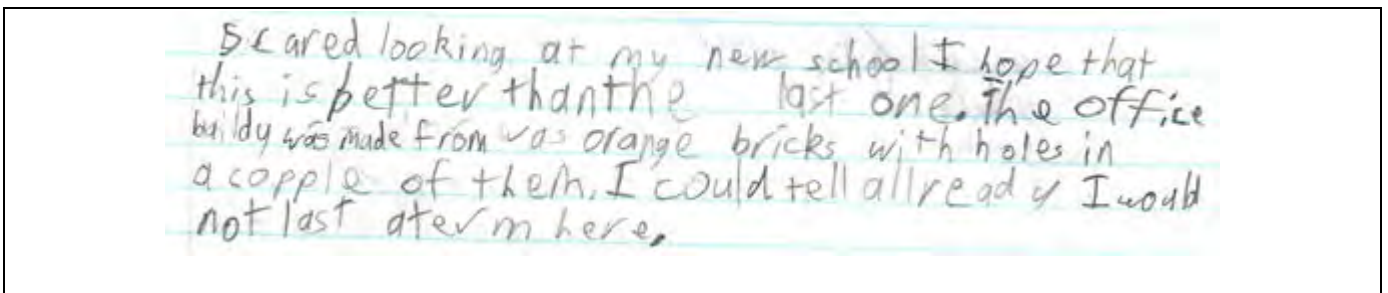 Scared looking at my new school I hope that
this is better than the last one. The office
buildy was made from vas orange bricks with holes in
a copple of them. I could tell allready I would
not last a term here.